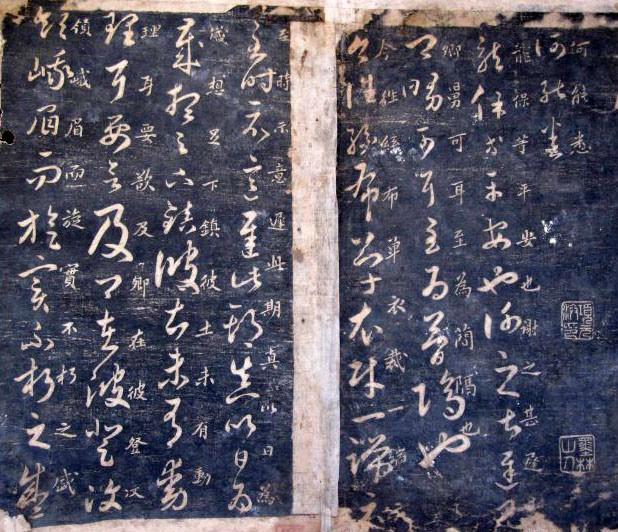 何能悉
何能悉
龍保等平安也謝之甚遲
龍保等平安也謝之甚遲見
卿舅可耳至為簡隔也
卿舅可耳至為簡隔也
今往絲布單衣裁一端
今往絲布單衣財一端示
至時示意遲此期真以日為
至時示意遲此期真以日為
感想足下鎮彼土未有動
歲想足下鎮彼土未有動
理耳要欲及卿在彼登汶
理耳要欲及卿在彼登汶
領峨眉而旋實不朽之盛
領峨眉而旋實不朽之盛
墨林山人